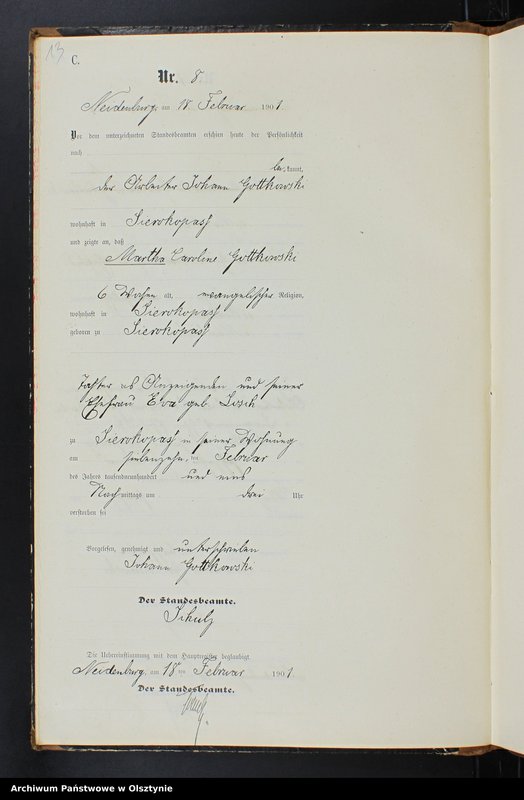 13
C.
Nr. 8
Neidenburg, am 18 Februar 1901.
Vor dem unterzeichneten Standesbeamten erschien heute der Persönlichkeit
nach
bekannt,
der Arbeiter Johann Gottkowski
wohnhaft in Sierokopaß
und zeigte an, daß
Martha Caroline Gottkowski
6 Wochen alt, evangelischer Religion,
wohnhaft in Sierokopaß
geboren zu Sierokopaß
Tochter des Anzeigenden und seiner
Ehefrau Eva geb.
zu Sierokopaß in seiner Wohnung
am siebenzehn ten Februar
des Jahres tausendneunhundert und eins
Nachmittags um drei Uhr
verstorben sei
Vorgelesen, genehmigt und unterschrieben
Johann Gottkowski
Der Standesbeamte.
Schulz
Die Uebereinstimmung mit dem Hauptregister beglaubigt.
Neidenburg, am 18 ten Februar 1901
Der Standesbeamte.
Archiwum Państwowe w Olsztynie